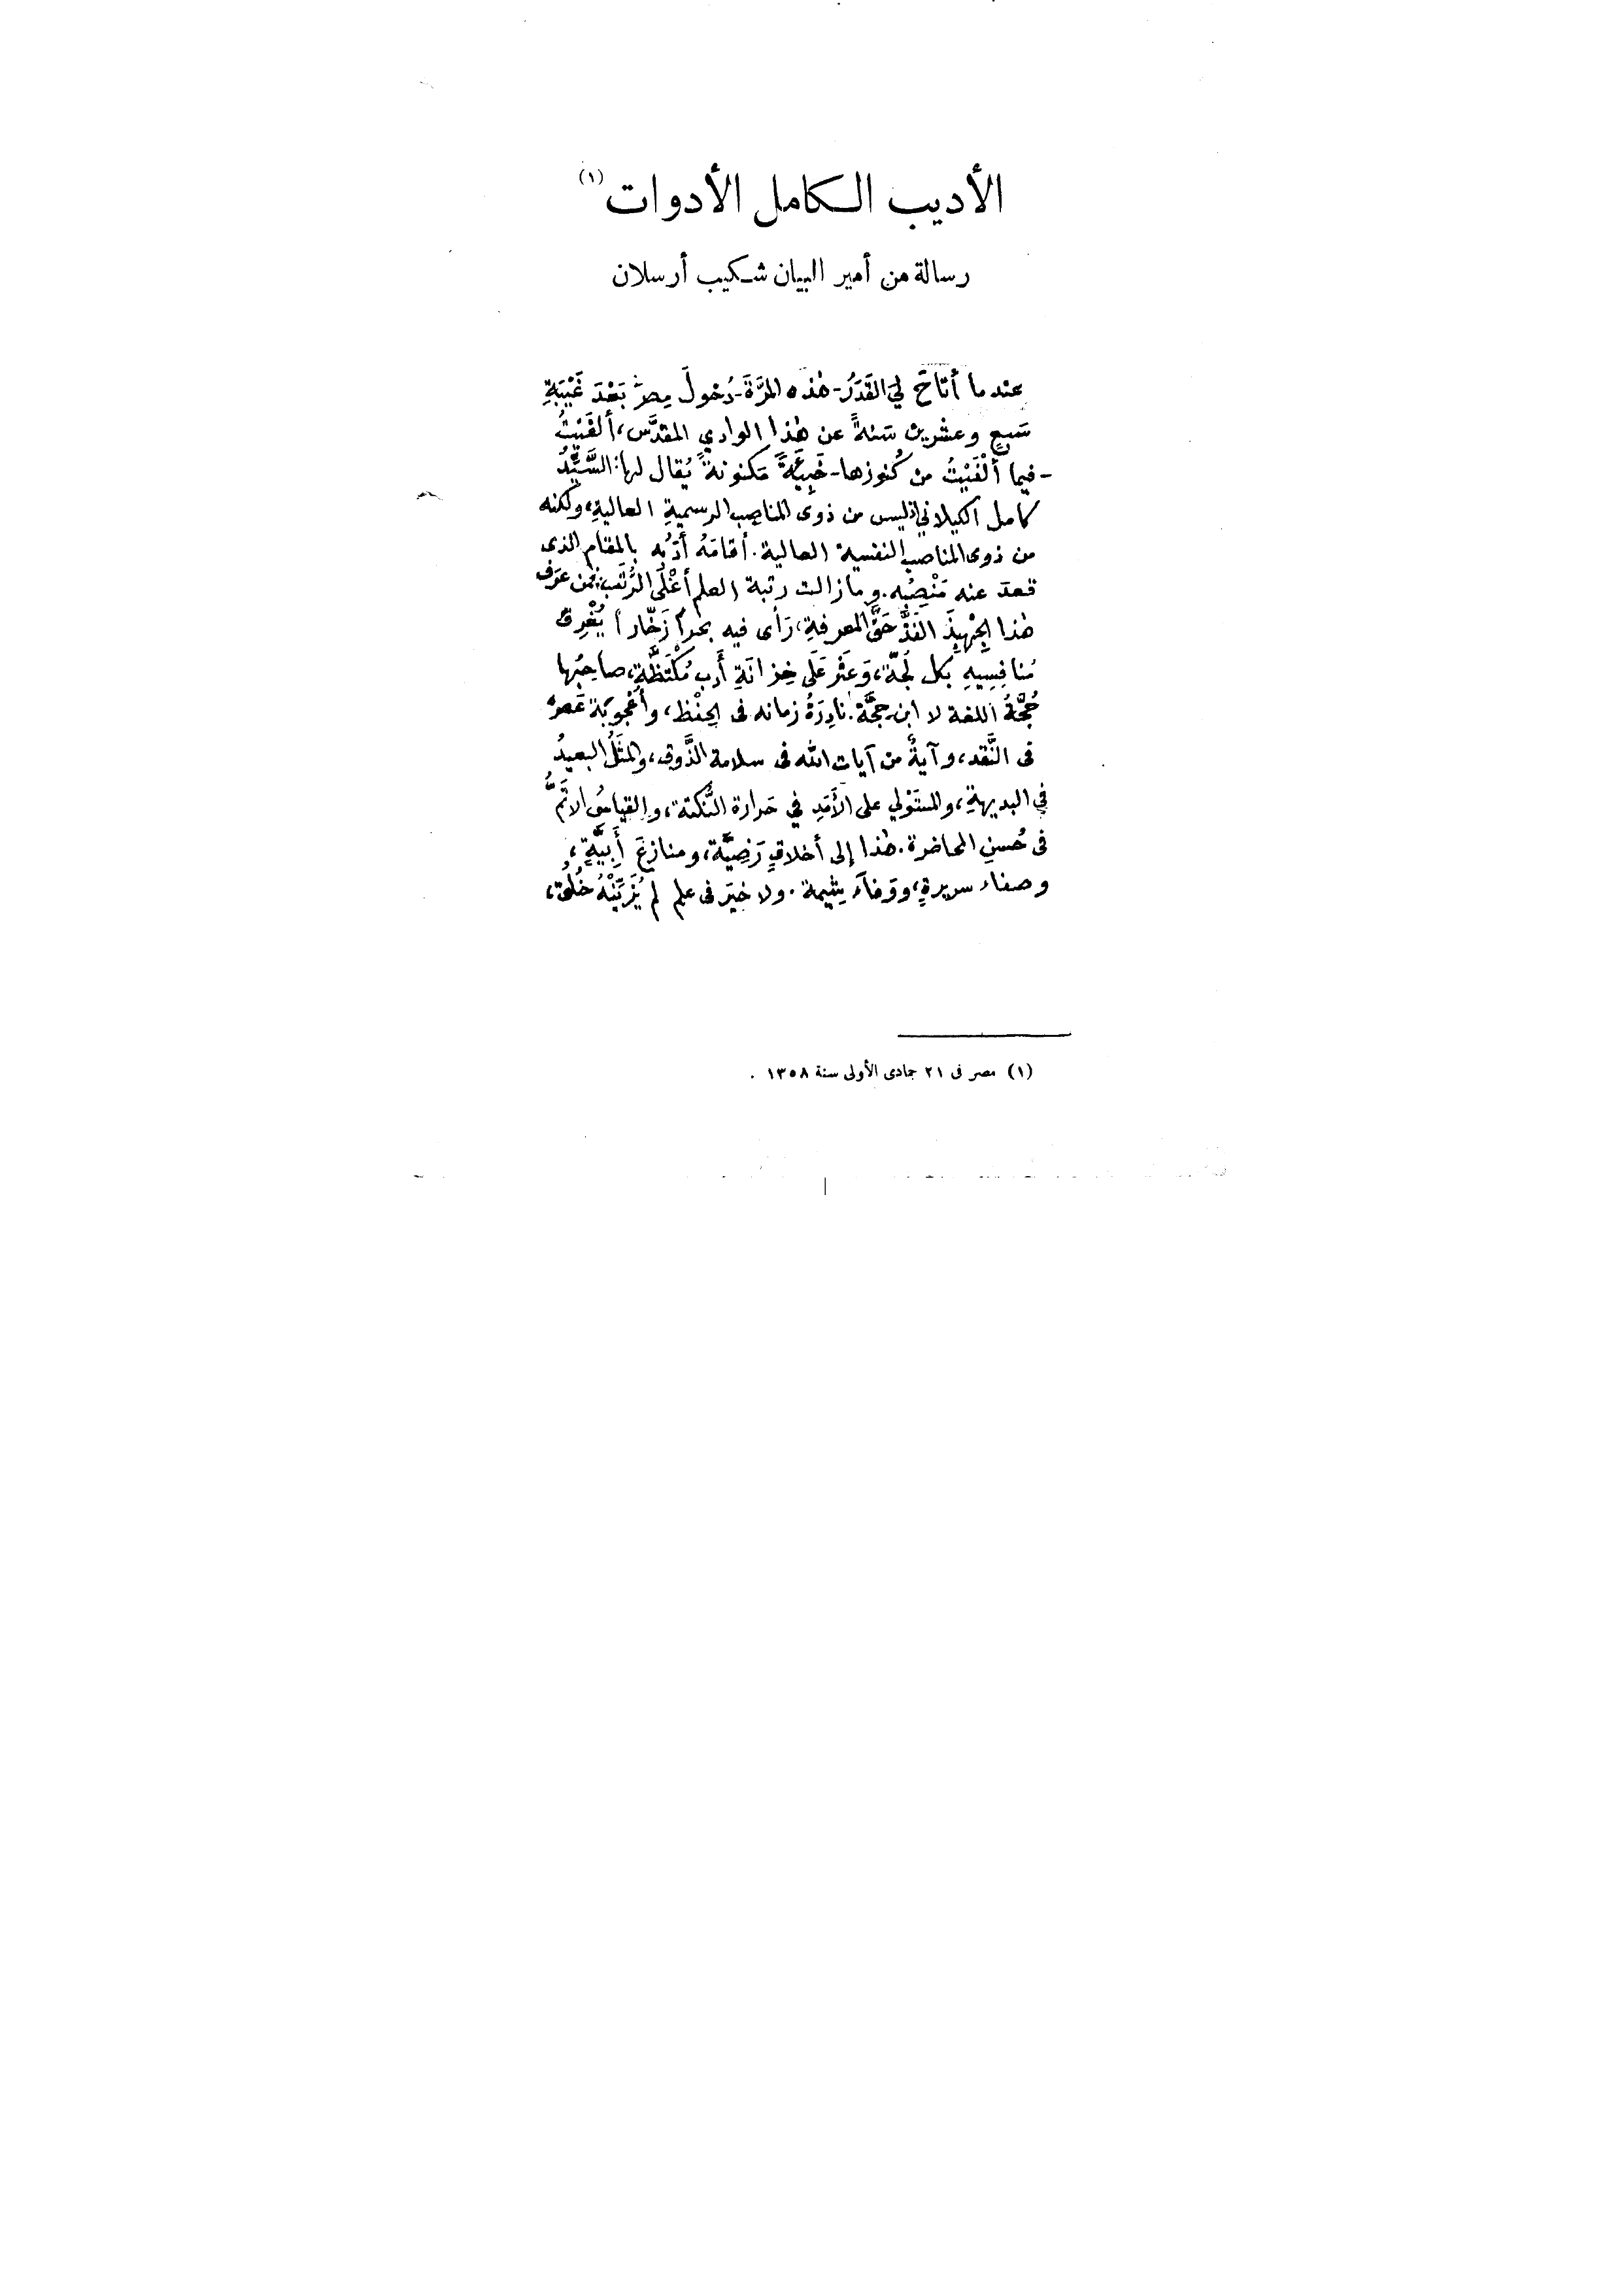 الأديب الكامل الأدوات (١)
رسالة من أمير البيان شكيب أرسلان
عندما أتاحَ لي القَدَرُ - هٰذه المرَّةَ - دُخولَ مِصرَ بَعْدَ غَيْبَةِ
سَبعٍ وعشرين سَنةً عن هٰذا الوادي المقدَّس، ألفَيْتُ
- فيما ألْفَيْتُ من كُنوزها - خَبِيئَةً مَكنونةً يُقال لها: السَّيِّدُ
كامل الكيلاني إذ ليس من ذوى المناصِب الرسميةِ العاليةِ، ولكنه
من ذوى المناصب النفسية العالية. أقامَهُ أدَبُه بالمقام الذى
قعدَ عنه مَنْصِبُه. وما زالت رتبة العلم أعْلَى الرُّتَب، فمن عرَف
هٰذا الجِهْبِذَ الفَذَّ حَقَّ المعرفةِ، رَأى فيه بحراً زَخّاراً يُغْرِقُ
مُنافِسِيهِ بكل لُجَّة، وَعَثَر عَلَى خِزانَةِ أَدبٍ مُكْتَظَّةٍ، صاحِبُها
حُجَّةُ اللغة لا ابن حِجَّة. نادِرَةُ زمانه فى الحِفْظ، وأُعْجوبَة عَصره
فى النَّقد، وآيةٌ من آيات الله فى سلامة الذَّوق، والمثَلُ البعيدُ
في البديهةِ، والمستَوْلي على الأَمَدِ في حَرارة النُّكتة، والقياسُ الأتَمُّ
فى حُسنِ المحاضرة. هٰذا إلى أخلاقٍ رَضِيَّة، ومنازِعَ أَبِيَّةٍ،
وصفاء سريرةٍ، ووَفاءَ بشيمة. ولا خَيرَ فى علم لم يُزَيِّنْهُ خُلُق،
(١) مصر فى ٢١ جمادى الأولى سنة ١٣٥٨ .